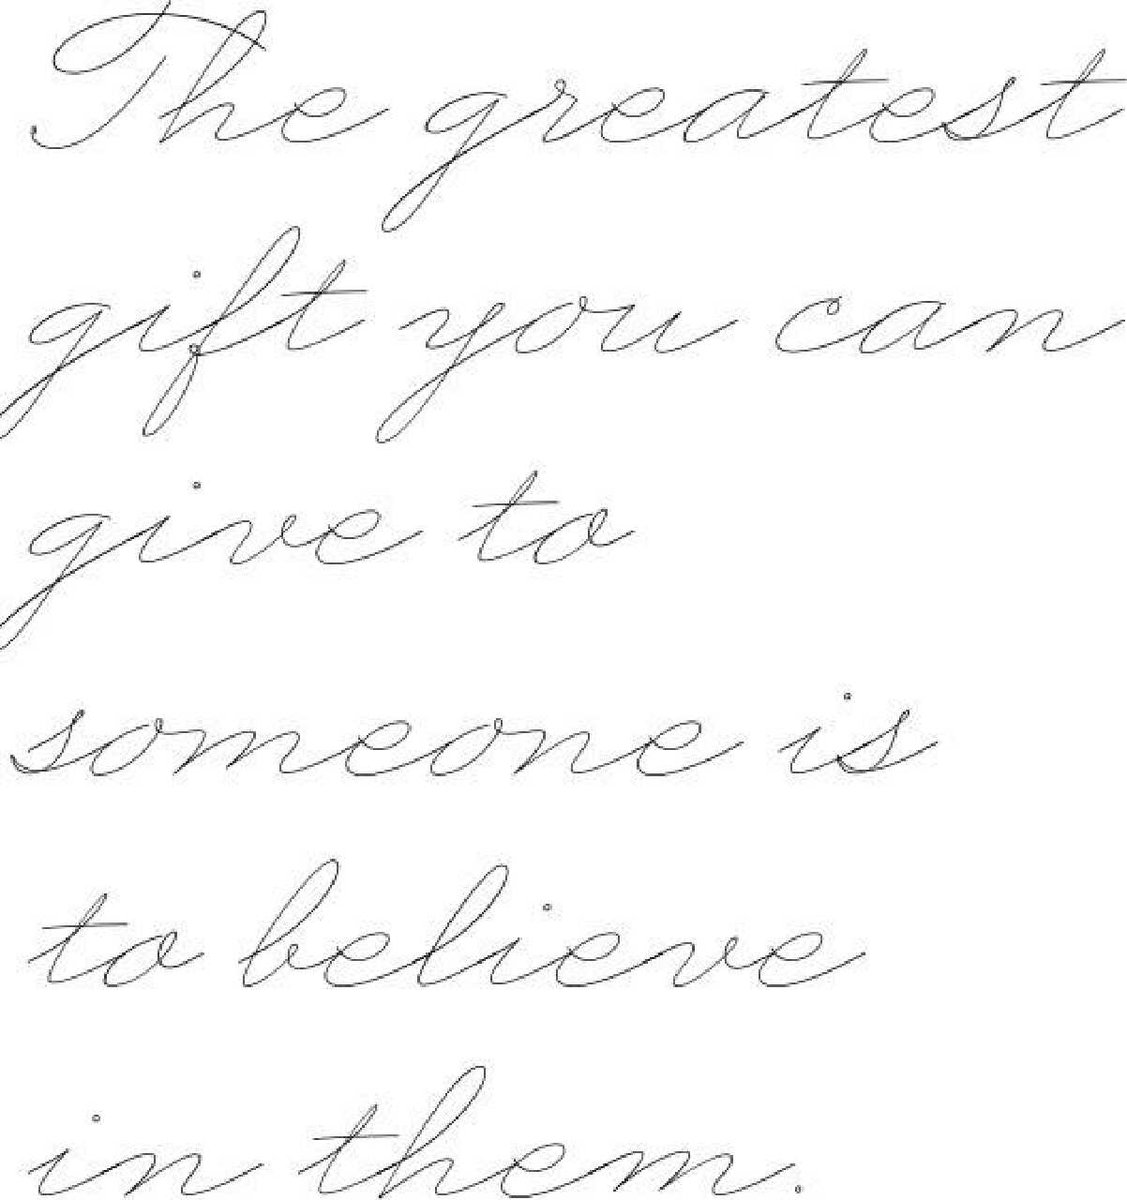 The greatest
gift you can
give to
someone is
to believe
in them.